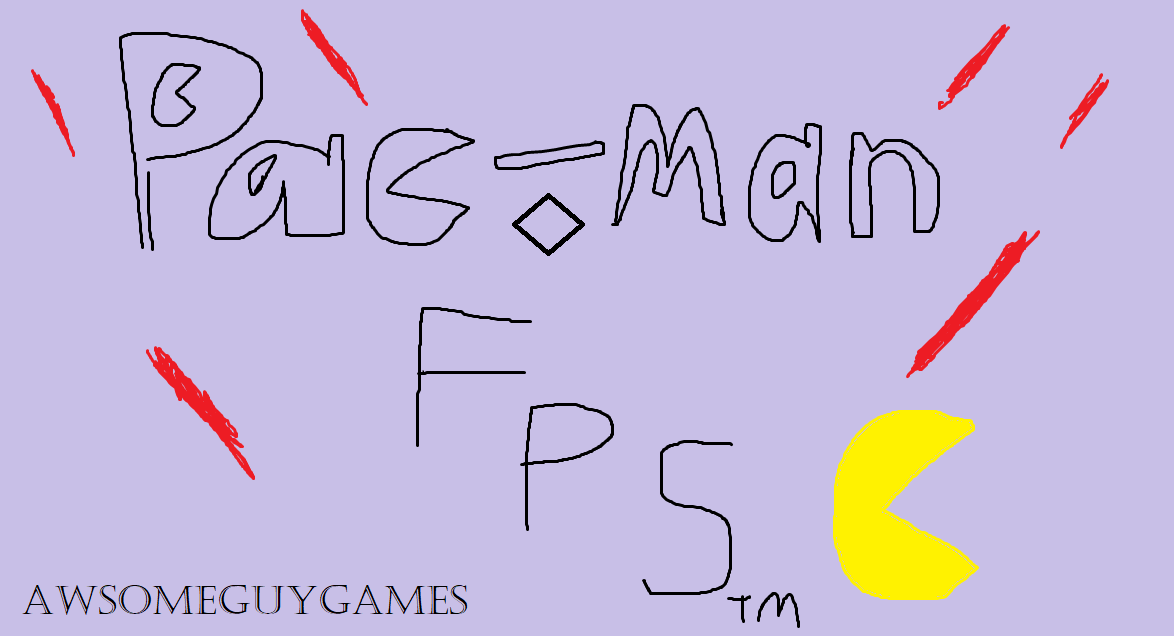 Pac-Man
FPS TM
AWSOMEGUYGAMES